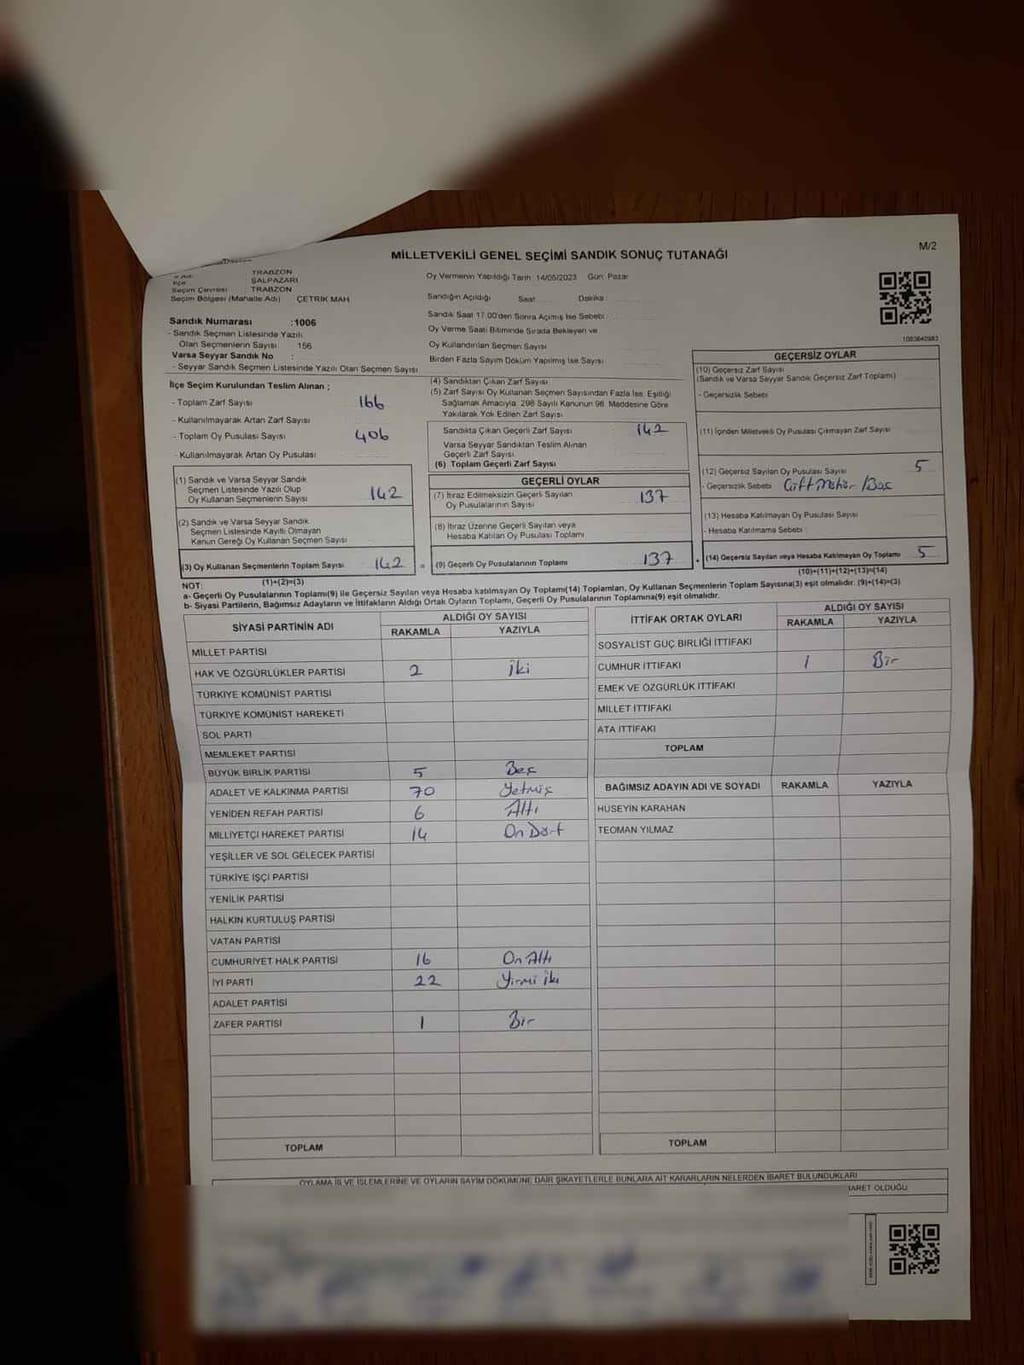 MİLLETVEKİLİ GENEL SEÇİMİ SANDIK SONUÇ TUTANAĞI
M/2
TRABZON
İlçe ŞALPAZARI
Seçim Çevresi TRABZON
Seçim Bölgesi (Mahalle Adı) ÇETRİK MAH
Sandık Numarası :1006
- Sandık Seçmen Listesinde Yazılı
Olan Seçmenlerin Sayısı 156
Varsa Seyyar Sandık No :
- Seyyar Sandık Seçmen Listesinde Yazılı Olan Seçmen Sayısı
Oy Vermenin Yapıldığı Tarih: 14/05/2023 Gün: Pazar
Sandığın Açıldığı Saat Dakika
Sandık Saat 17.00'den Sonra Açılmış İse Sebebi
Oy Verme Saati Bitiminde Sırada Bekleyen ve
Oy Kullandırılan Seçmen Sayısı
Birden Fazla Sayım Döküm Yapılmış İse Sayısı
İlçe Seçim Kurulundan Teslim Alınan ;
- Toplam Zarf Sayısı 166
- Kullanılmayarak Artan Zarf Sayısı
- Toplam Oy Pusulası Sayısı 406
- Kullanılmayarak Artan Oy Pusulası
(1) Sandık ve Varsa Seyyar Sandık
Seçmen Listesinde Yazılı Olup
Oy Kullanan Seçmenlerin Sayısı 142
(2) Sandık ve Varsa Seyyar Sandık
Seçmen Listesinde Kayıtlı Olmayan
Kanun Gereği Oy Kullanan Seçmen Sayısı
(3) Oy Kullanan Seçmenlerin Toplam Sayısı 142
(1)+(2)=(3)
(4) Sandıktan Çıkan Zarf Sayısı
(5) Zarf Sayısı Oy Kullanan Seçmen Sayısından Fazla İse, Eşitliği
Sağlamak Amacıyla, 298 Sayılı Kanunun 98. Maddesine Göre
Yakılarak Yok Edilen Zarf Sayısı
Sandıkta Çıkan Geçerli Zarf Sayısı 142
Varsa Seyyar Sandıktan Teslim Alınan
Geçerli Zarf Sayısı
(6) Toplam Geçerli Zarf Sayısı
GEÇERLİ OYLAR
(7) İtiraz Edilmeksizin Geçerli Sayılan
Oy Pusulalarının Sayısı 137
(8) İtiraz Üzerine Geçerli Sayılan veya
Hesaba Katılan Oy Pusulası Toplamı
(9) Geçerli Oy Pusulalarının Toplamı 137
GEÇERSİZ OYLAR
(10) Geçersiz Zarf Sayısı
(Sandık ve Varsa Seyyar Sandık Geçersiz Zarf Toplamı)
- Geçersizlik Sebebi
(11) İçinden Milletvekili Oy Pusulası Çıkmayan Zarf Sayısı
(12) Geçersiz Sayılan Oy Pusulası Sayısı 5
- Geçersizlik Sebebi Çift Mühür / Boş
(13) Hesaba Katılmayan Oy Pusulası Sayısı
- Hesaba Katılmama Sebebi
(14) Geçersiz Sayılan veya Hesaba Katılmayan Oy Toplamı 5
(10)+(11)+(12)+(13)=(14)
NOT:
a- Geçerli Oy Pusulalarının Toplamı(9) ile Geçersiz Sayılan veya Hesaba katılmayan Oy Toplamı(14) Toplamları, Oy Kullanan Seçmenlerin Toplam Sayısına(3) eşit olmalıdır. (9)+(14)=(3)
b- Siyasi Partilerin, Bağımsız Adayların ve İttifakların Aldığı Ortak Oyların Toplamı, Geçerli Oy Pusulalarının Toplamına(9) eşit olmalıdır.
SİYASİ PARTİNİN ADI ALDIĞI OY SAYISI
RAKAMLA YAZIYLA
MİLLET PARTİSİ
HAK VE ÖZGÜRLÜKLER PARTİSİ 2 İki
TÜRKİYE KOMÜNİST PARTİSİ
TÜRKİYE KOMÜNİST HAREKETİ
SOL PARTİ
MEMLEKET PARTİSİ
BÜYÜK BİRLİK PARTİSİ 5 Beş
ADALET VE KALKINMA PARTİSİ 70 Yetmiş
YENİDEN REFAH PARTİSİ 6 Altı
MİLLİYETÇİ HAREKET PARTİSİ 14 On Dört
YEŞİLLER VE SOL GELECEK PARTİSİ
TÜRKİYE İŞÇİ PARTİSİ
YENİLİK PARTİSİ
HALKIN KURTULUŞ PARTİSİ
VATAN PARTİSİ
CUMHURİYET HALK PARTİSİ 16 On Altı
İYİ PARTİ 22 Yirmi iki
ADALET PARTİSİ
ZAFER PARTİSİ 1 Bir
TOPLAM
İTTİFAK ORTAK OYLARI ALDIĞI OY SAYISI
RAKAMLA YAZIYLA
SOSYALİST GÜÇ BİRLİĞİ İTTİFAKI
CUMHUR İTTİFAKI 1 Bir
EMEK VE ÖZGÜRLÜK İTTİFAKI
MİLLET İTTİFAKI
ATA İTTİFAKI
TOPLAM
BAĞIMSIZ ADAYIN ADI VE SOYADI RAKAMLA YAZIYLA
HÜSEYİN KARAHAN
TEOMAN YILMAZ
TOPLAM
OYLAMA İŞ VE İŞLEMLERİNE VE OYLARIN SAYIM DÖKÜMÜNE DAİR ŞİKAYETLERLE BUNLARA AİT KARARLARIN NELERDEN İBARET BULUNDUKLARI